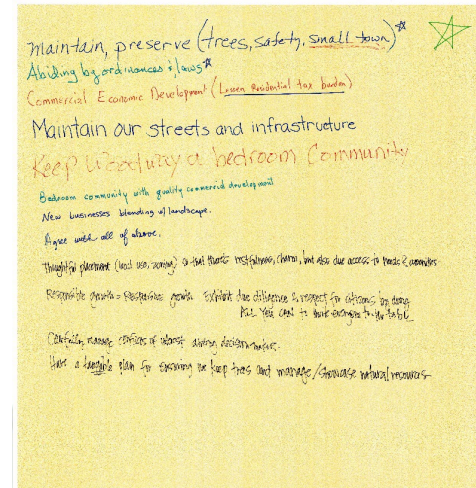 Maintain, preserve (trees, safety, small town)
Abiding by ordinances & laws
Commercial Economic Development (Lessen Residential tax burden)
Maintain our streets and infrastructure
Keep Woodway a bedroom Community
Bedroom community with quality commercial development
New businesses blending w/ landscape.
Agree with all of above.
Thoughtful placement (land use, zoning) so that there's restfulness, charm, but also due access to needs & amenities
Responsible growth = Responsive growth. Exhibit due diligence & respect for citizens by doing
ALL YOU CAN to invite everyone to the table
Carefully manage conflicts of interest among decision-makers.
Have a tangible plan for ensuring we keep trees and manage/showcase natural resources